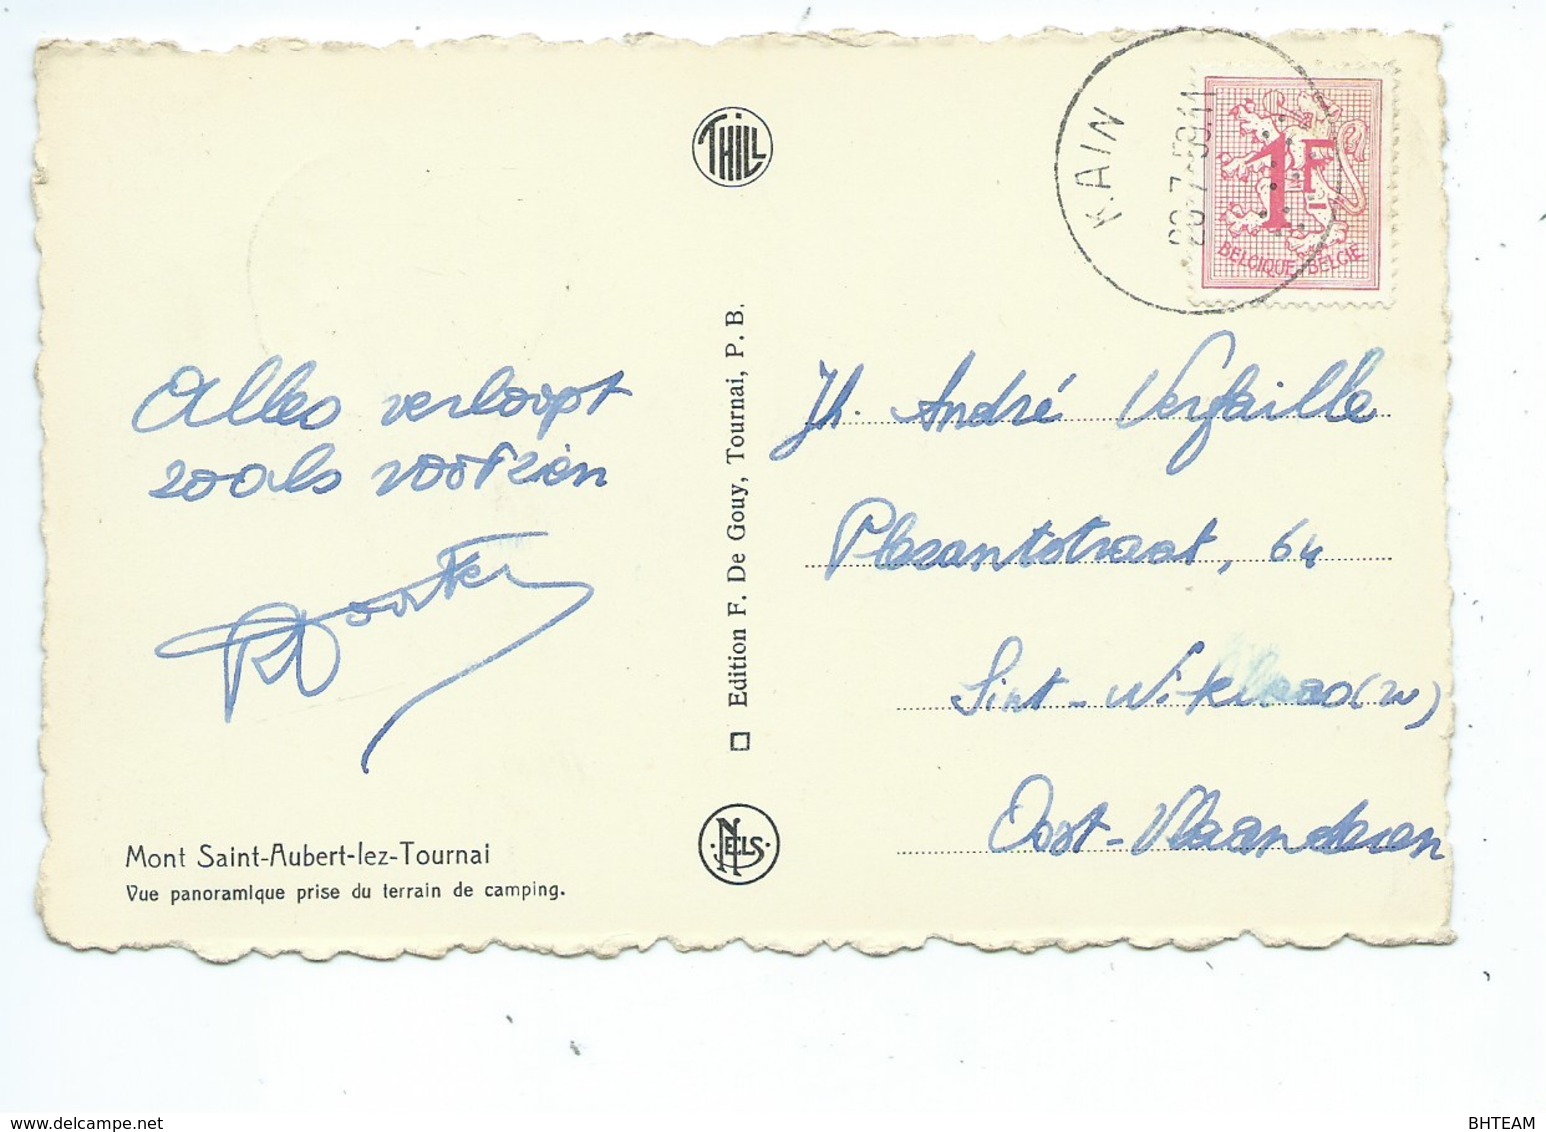 THILL
KAIN
28-7-59.11
1F
BELGIQUE-BELGIE
Alles verloopt
zooals voorzien
Edition F. De Gouy, Tournai, P. B.
Jh. André Verfaille
Plezantstraat, 64
Sint-Niklaas (W)
Oost-Vlaanderen
NELS
Mont Saint-Aubert-lez-Tournai
Vue panoramique prise du terrain de camping.
delcampe.net
BHTEAM